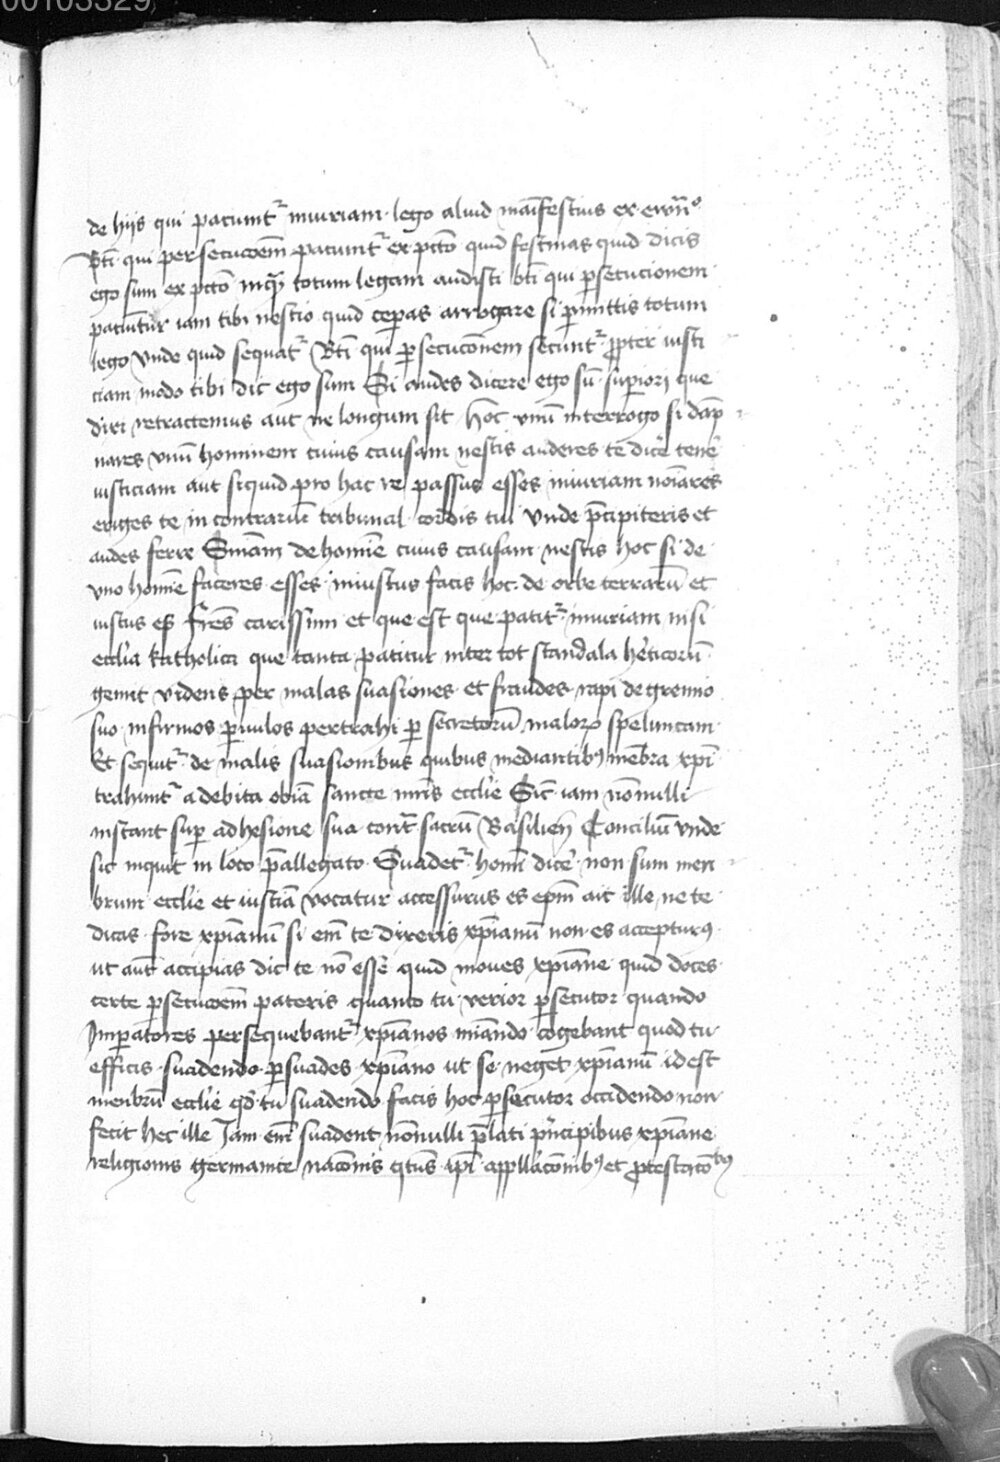 00103329
de hijs qui patiuntr iniuriam lego aliud maifestius ex
Bti qui persecucoem patiuntr ex pcto quid festinas quid dicis
ego sum ex pcto inqt totum legam audisti bti qui psecucionem
patiuntur iam tibi nescio quid ceperas arrogare si pmittis totum
lego unde quid sequatr Bti qui psecuconem secuntr propter iusti
ciam modo tibi dic ego sum Si audes dicere ego su superiora que
dixi retractemus aut ne longum sit hoc unu interrogo si damp
nares unu hominem cuius causam nescis auderes te dice tene
iusticiam aut siquid pro hac re passus esses iniuriam noiares
eriges te in contrariu tribunal cordis tui unde pcipiteris et
audes ferre Smam de homie cuius causam nescis hoc si de
uno homie faceres esses iniustus facis hoc de orbe terraru et
iustus es fres carissimi et que est que patitr iniuriam nisi
ecclia katholica que tanta patitur inter tot scandala heticoru
gemit videns per malas suasiones et fraudes rapi de gremio
suo infirmos pvulos pertrahi p secretoru malorum speluncam
Et sequitr de malis suasionibus quibus mediantibus mebra xpi
trahuntr a debita obia sancte mris ecclie Sic iam nonulli
instant sup adhesione sua contr sacru Basilien Conciliu unde
sic inquit in loco pallegato Suadetr homi dice non sum men
brum ecclie et iustia vocatur accessurus es epm ait ille ne te
dicas fore xpianu si em te dixeris xpianu non es accepturus
ut aut accipias dic te no esse quid moves xpiane quid doces
certe psecucoem pateris quanto tu verior psecutor quando
Impatores persequebantr xpianos miando cogebant quod tu
efficis suadendo psuades xpiano ut se neget xpianu id est
menbru ecclie qd tu suadendo facis hoc psecutor occidendo non
fecit hec ille Iam em suadent nonulli plati pncipibus xpiane
religionis germanice nacionis qtus ipi appellaconibus et protestaconibus